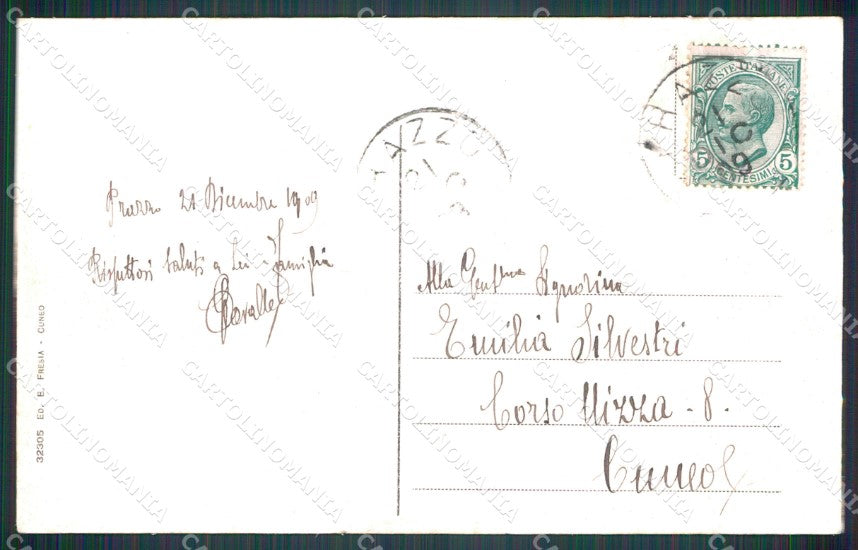 Prazzo 21 Dicembre 1909
Rispettosi saluti a Lei Famiglia
32305 ED. B. FRESIA - CUNEO
RAZZO
21
12
POSTE ITALIANE
5 5
CENTESIMI
Alla Gent.ma Signorina
Emilia Silvestri
Corso Nizza - 8.
Cuneo
CARTOLINOMANIA